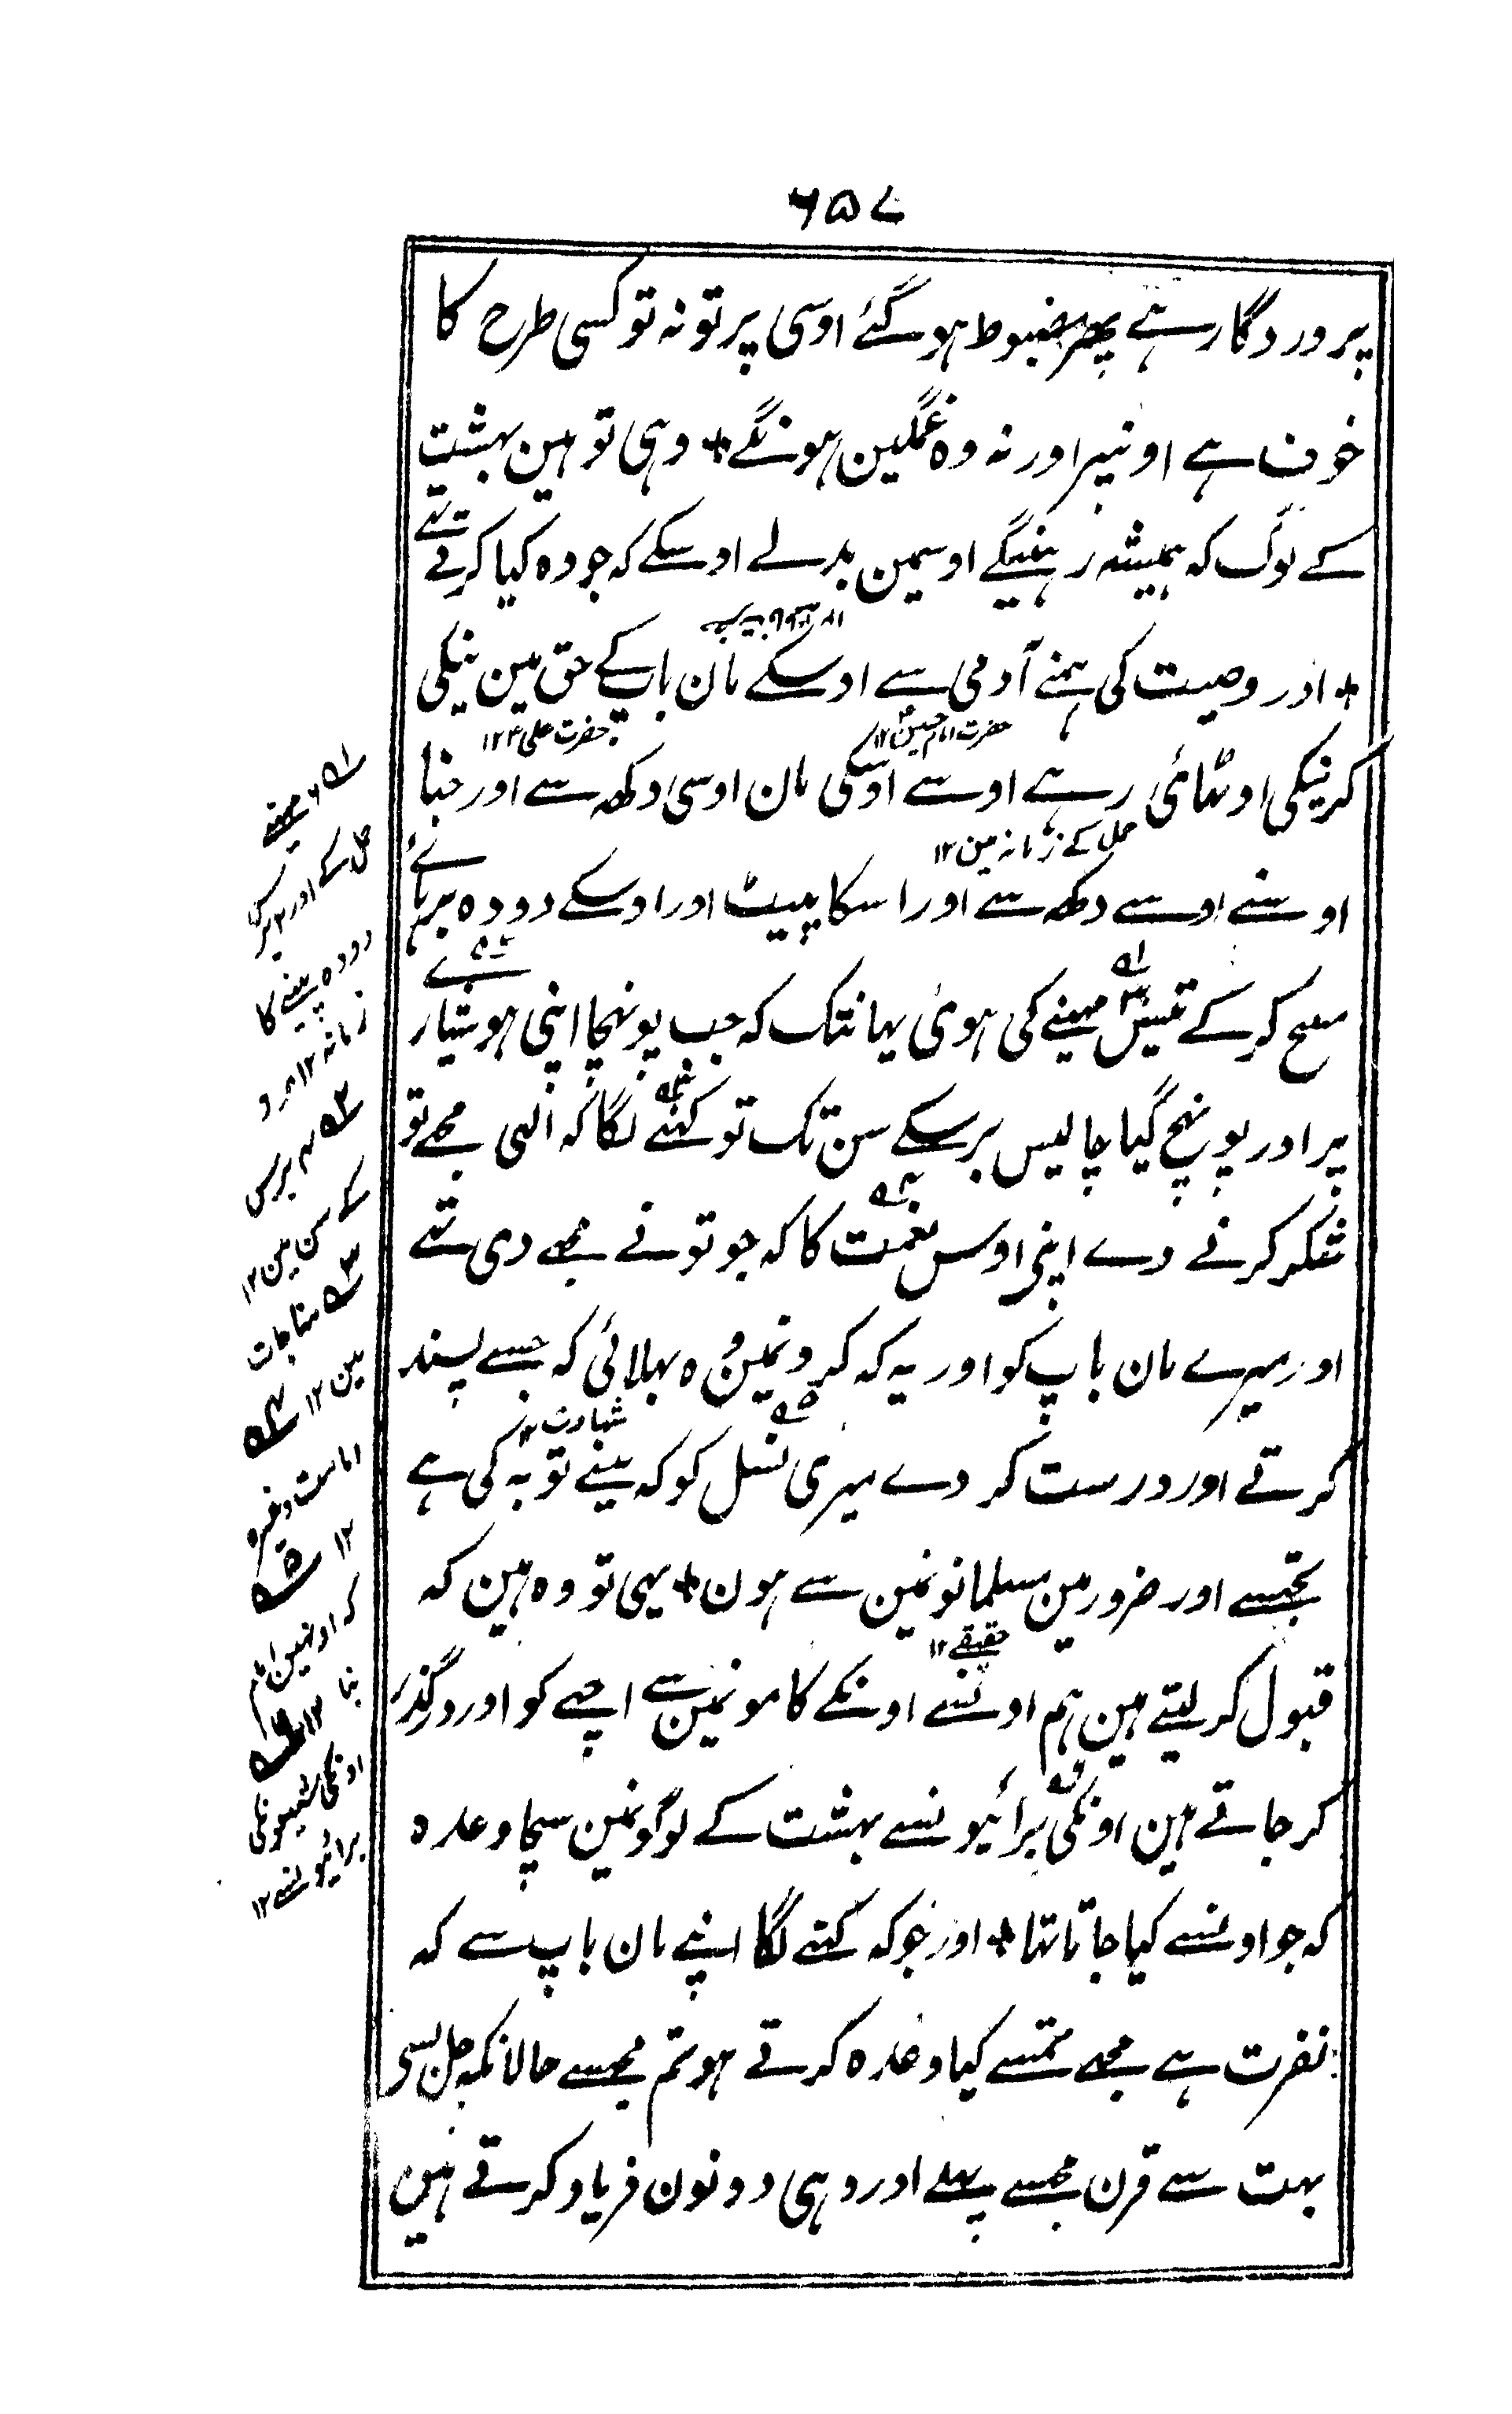 ۶۵۷
پروردگار ہے پھر مضبوط ہوگئے اوسی پر تو نہ تو کسی طرح کا
خوف ہے اونپر اور نہ وہ غمگین ہونگے + وہی تو ہین بہشت
کے لوگ کہ ہمیشہ رہینگے اوسیمن بدلے اوسکے کہ جو وہ کیا کرتے تھے
+ اور وصیت کی ہمنے آدمی سے اوسکے مان باپکے حق مین نیکی
حضرت امام حسینؑ ۱۲ حضرت علیؑ ۱۲
کر نیکی اوٹھائی رہے اوسے اوسکی مان اوسی دکھہ سے اور جنا
حمل کے زمانہ مین ۱۲
اوسنے اوسے دکھہ سے اور اسکا پیٹ اور اوسکے دودہ بڑہانے
سب کرکے تیس مہینے کی ہوئی یہانتک کہ جب پونہچا اپنی ہوشیار
پر اور پونہچ گیا چالیس برسکے سن تک تو کہنے لگا کہ الہی مجھے تو
شکر کرنے دے اپنی اوس نعمت کا کہ جو تونے مجھے دی تھے
اور میرے مان باپ کو اور یہ کہ کرونمین وہ بھلائی کہ جسے پسند
شہادت ۱۲
کرتے اور درست کر دے میری نسل کو کہ مینے توبہ کی ہے
تجھسے اور ضرور مین مسلمانونمین سے ہون + یہی تو وہ ہین کہ
حقیقے ۱۲
قبول کر لیتے ہین ہم اونسے اونکے کامونمین سے اچھے کو اور درگذر
کر جاتے ہین اونکی برائیونسے بہشت کے لوگونمین سچا وعدہ
کہ جو اونسے کیا جاتا تھا + اور جو کہ کہنے لگا اپنے مان باپ سے کہ
نفرت ہے مجھے تمسے کیا وعدہ کرتے ہو تم مجھسے حالانکہ چل بسی
بہت سے قرن مجھسے پہلے اور وہی دونون فریاد کرتے ہین
۱ ۶ مہینے
حمل کے اور ۲ برس
دودہ پینے کا
زمانہ ۱۲
۲ ۴۰ برس
کے سن مین ۱۲
۳ مناجات
مین ۱۲ ۴
امامت وغیرہ
۱۲ ۵
کہ اونہین امام
بنا ۱۲ ۶
اونکی شیعونکی
برائیونسے ۱۲